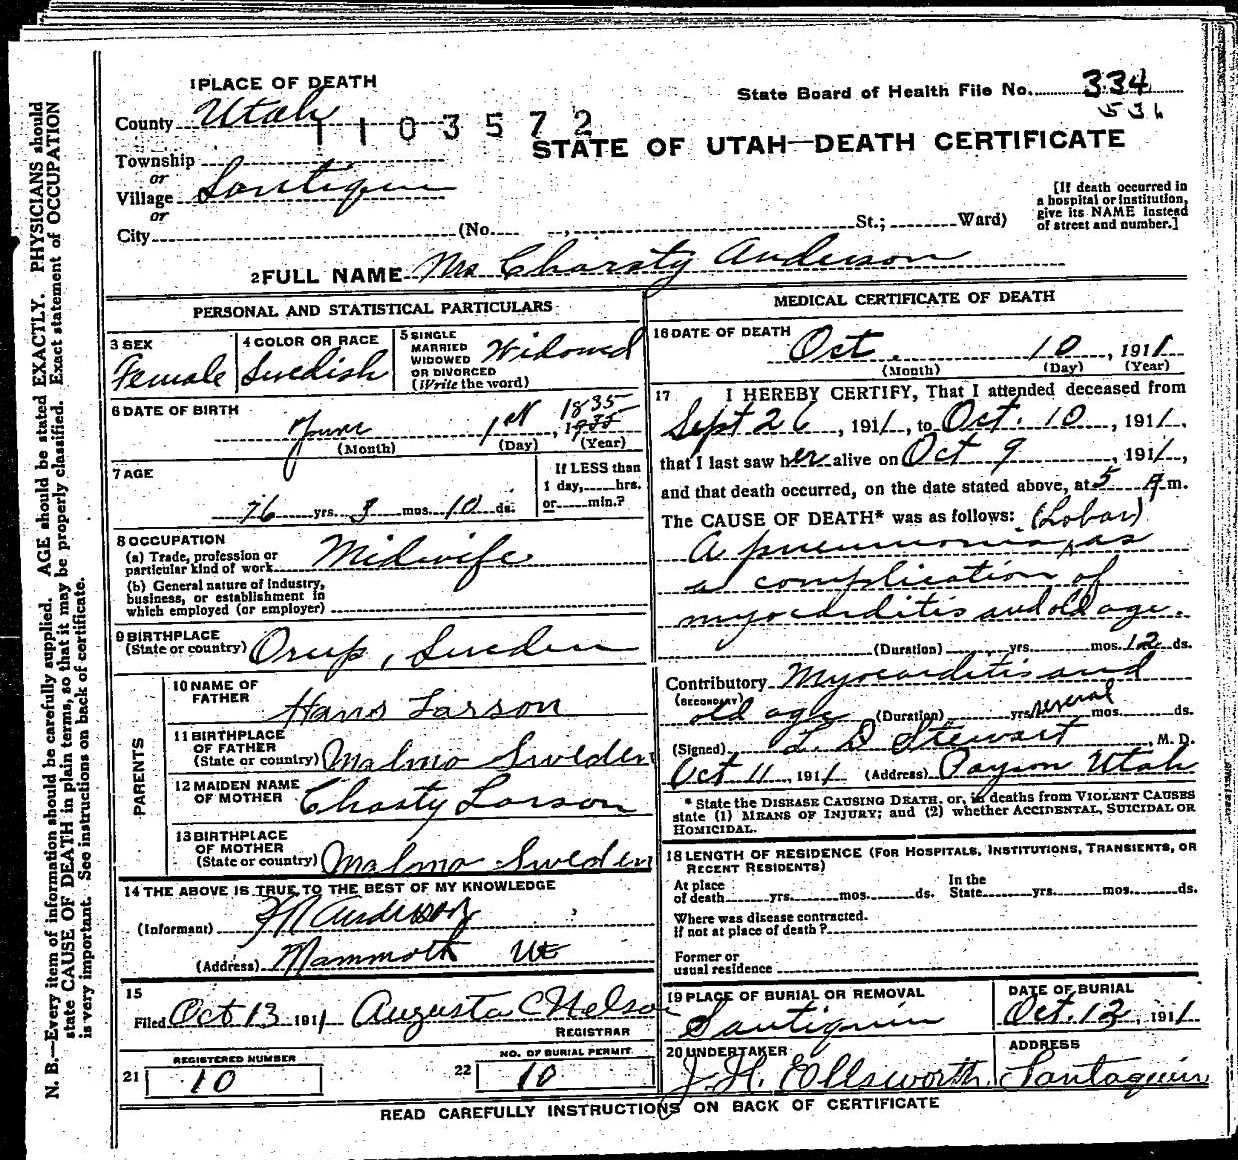 1 PLACE OF DEATH
County Utah
1103572
Township
or
Village Santiquin
or
City (No. , St.; Ward)
State Board of Health File No. 334
536
STATE OF UTAH—DEATH CERTIFICATE
[If death occurred in
a hospital or institution,
give its NAME instead
of street and number.]
2 FULL NAME Mrs Charsty Anderson
PERSONAL AND STATISTICAL PARTICULARS
3 SEX
Female
4 COLOR OR RACE
Swedish
5 SINGLE
MARRIED
WIDOWED
OR DIVORCED
(Write the word)
Widowed
6 DATE OF BIRTH
June 1st, 1835
1935
(Month) (Day) (Year)
7 AGE
76 yrs. 3 mos. 10 ds.
If LESS than
1 day, hrs.
or min.?
8 OCCUPATION
(a) Trade, profession or
particular kind of work Midwife
(b) General nature of industry,
business, or establishment in
which employed (or employer)
9 BIRTHPLACE
(State or country) Orup, Sweden
PARENTS
10 NAME OF
FATHER Hans Larson
11 BIRTHPLACE
OF FATHER
(State or country) Malmo Sweden
12 MAIDEN NAME
OF MOTHER Chasty Larson
13 BIRTHPLACE
OF MOTHER
(State or country) Malmo Sweden
14 THE ABOVE IS TRUE TO THE BEST OF MY KNOWLEDGE
(Informant) Anderson
(Address) Mammoth Ut
15
Filed Oct 13 1911 Augusta C Nelson
REGISTRAR
REGISTERED NUMBER
21 10
NO. OF BURIAL PERMIT
22 10
MEDICAL CERTIFICATE OF DEATH
16 DATE OF DEATH
Oct. 10, 1911
(Month) (Day) (Year)
17 I HEREBY CERTIFY, That I attended deceased from
Sept 26, 1911, to Oct. 10, 1911.
that I last saw her alive on Oct 9, 1911,
and that death occurred, on the date stated above, at 5 A m.
The CAUSE OF DEATH* was as follows: (Lobar)
A pneumonia ^ as
a complication of
myocarditis and old age.
(Duration) yrs. mos. 12 ds.
Contributory Myocarditis and
(SECONDARY) old age (Duration) yrs. several mos. ds.
(Signed) L. D Stewart, M. D.
Oct 11, 1911 (Address) Payson Utah
* State the DISEASE CAUSING DEATH, or, in deaths from VIOLENT CAUSES
state (1) MEANS OF INJURY; and (2) whether ACCIDENTAL, SUICIDAL OR
HOMICIDAL.
18 LENGTH OF RESIDENCE (FOR HOSPITALS, INSTITUTIONS, TRANSIENTS, OR
RECENT RESIDENTS)
At place
of death yrs. mos. ds.
In the
State yrs. mos. ds.
Where was disease contracted.
if not at place of death?
Former or
usual residence
19 PLACE OF BURIAL OR REMOVAL
Santiquin
DATE OF BURIAL
Oct. 12, 1911
20 UNDERTAKER
J. H. Ellsworth.
ADDRESS
Santaquin
READ CAREFULLY INSTRUCTIONS ON BACK OF CERTIFICATE
N. B.—Every item of information should be carefully supplied. AGE should be stated EXACTLY. PHYSICIANS should
state CAUSE OF DEATH in plain terms, so that it may be properly classified. Exact statement of OCCUPATION
is very important. See instructions on back of certificate.